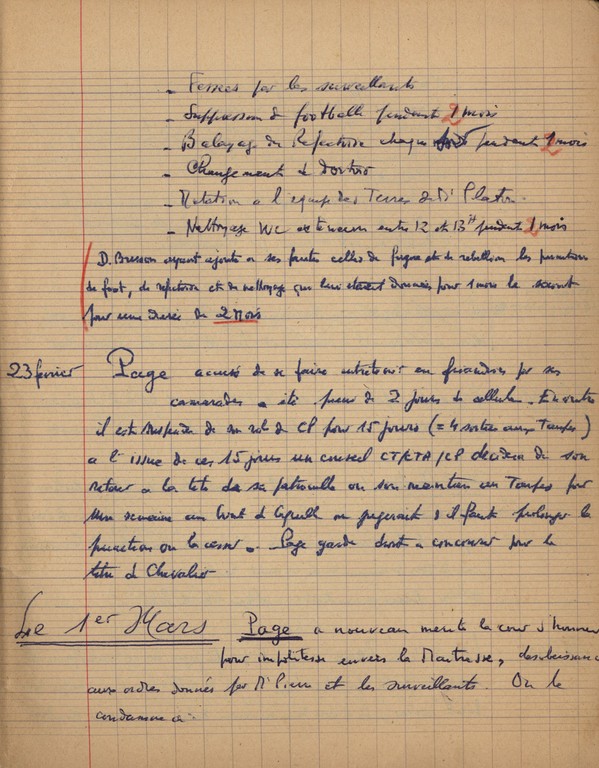 - Fessées par les surveillants
- Suppression de football pendant 2 mois
- Balayage du Réfectoire chaque soir pendant 2 mois
- Changement de dortoir
- Rotation a l'équipe des Terres de Mr
- Nettoyage WC entre 12 et 13H pendant 1 mois
D. Buisson ayant ajouté a ses fautes celles de fugue et de rebellion les punitions
de foot, de refectoire et de nettoyage qui lui étaient données pour 1 mois le seront
pour une durée de 2 Mois
23 février Page accusé de se faire entretenir en friandises par ses
camarades a été puni de 2 jours de cellule. En outre
il est suspendu de son rôle de CP pour 15 jours (= 4 sorties aux Taupes)
a l'issue de ces 15 jours un conseil CT/CTA/CP décidera de son
retour a la tete de sa patrouille ou son maintien aux Taupes pour
une semaine au bout de laquelle on jugerait s'il faut prolonger la
punition ou la cesser. Page garde droit a concourir pour le
titre de Chevalier
Le 1er Mars Page a nouveau mérite la cour d'honneur
pour impolitesse envers la Maitresse, desobeissance
aux ordres donnés par Mr Pierre et les surveillants. On le
condamne a